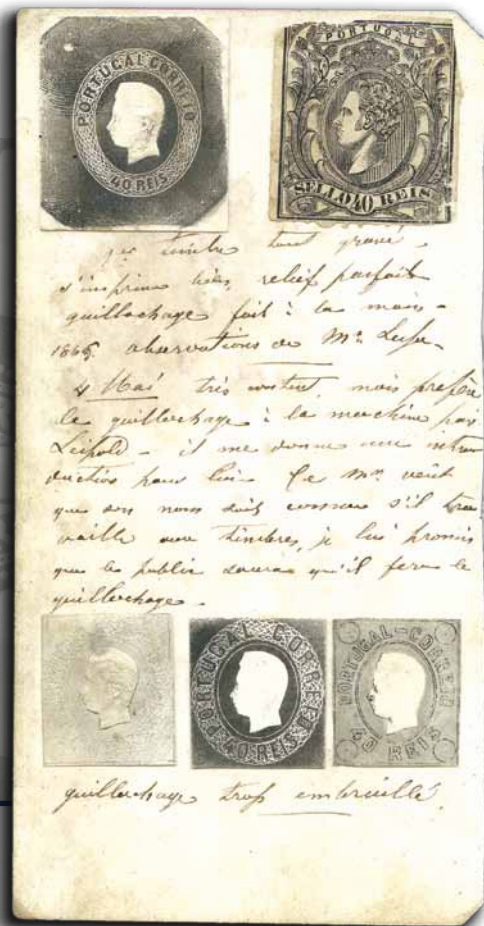 PORTUGAL CORREIO
40 REIS
PORTUGAL
SELLO 40 REIS
1er timbre tout gravé
s'imprime très relief parfait
guillochage fait à la main -
1865. observations de Mr.
4 Mai très content, mais préfère
le guillochage à la machine par
Leipold - il me donne une introd
uction pour lui. Ce Mr. veut
que son nom soit connu s'il tra
vaille aux timbres, je lui promis
que le public saura qu'il fera le
guillochage -
PORTUGAL CORREIO
40 REIS
PORTUGAL-CORREIO
REIS
guillochage trop embrouillé